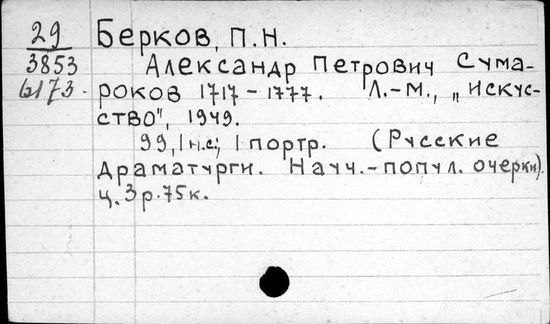 29 Берков, П.Н.
3853 Александр Петрович Сума-
6173 роков 1717-1777. Л.-М., „Искус-
ство", 1949.
99, 1 н.с; 1 портр. (Русские
драматурги. Науч.-попул. очерки).
ц. 3 р. 75 к.